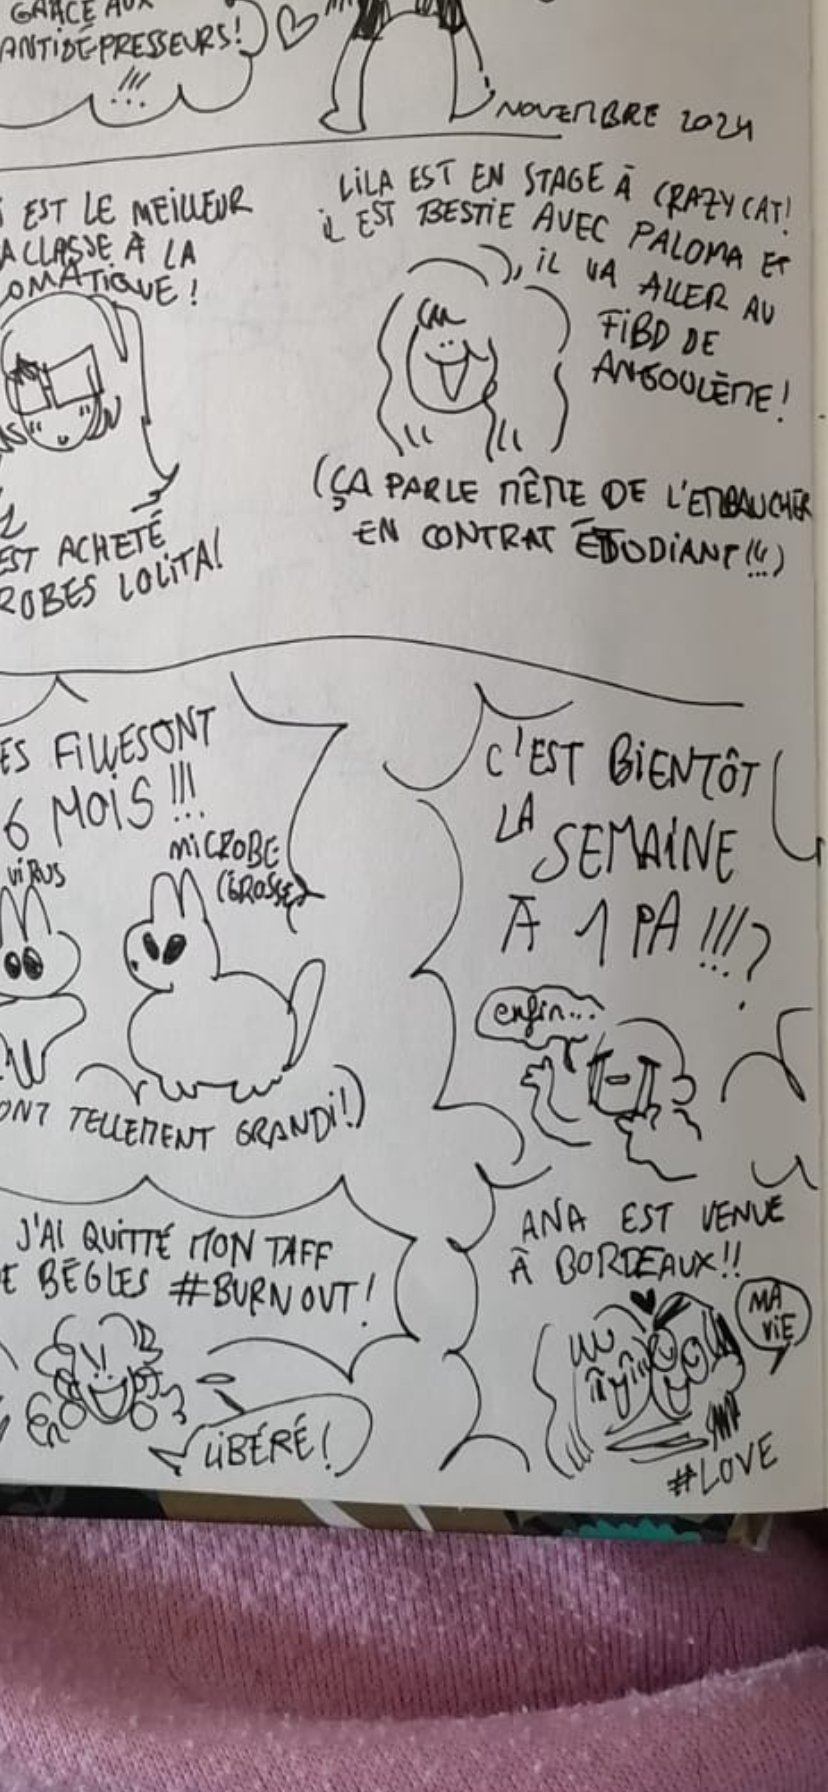 GRÂCE AUX
ANTIDÉPRESSEURS!
!!!
NOVEMBRE 2024
EST LE MEILLEUR
CLASSE À LA
OMATIQUE!
EST ACHETÉ
ROBES LOLITA!
LILA EST EN STAGE À CRAZY CAT!
IL EST BESTIE AVEC PALOMA ET
IL VA ALLER AU
FIBD DE
ANGOULÊME!
(ÇA PARLE MÊME DE L'EMBAUCHER
EN CONTRAT ÉTUDIANT!!!)
ES FILLES ONT
6 MOIS!!!
VIRUS
MICROBE
(GROSSE)
ONT TELLEMENT GRANDI!)
C'EST BIENTÔT
LA
SEMAINE
À 1 PA !!!?
enfin...
J'AI QUITTÉ MON TAFF
E BÈGLES #BURNOUT!
LIBÉRÉ!
ANA EST VENUE
À BORDEAUX!!
MA
VIE
#LOVE